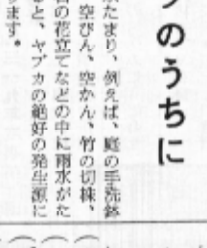 のうちに
水たまり、例えば、庭の手洗鉢
空びん、空かん、竹の切株、
の花立てなどの中に雨水がた
ると、ヤブカの絶好の発生源に
ります。